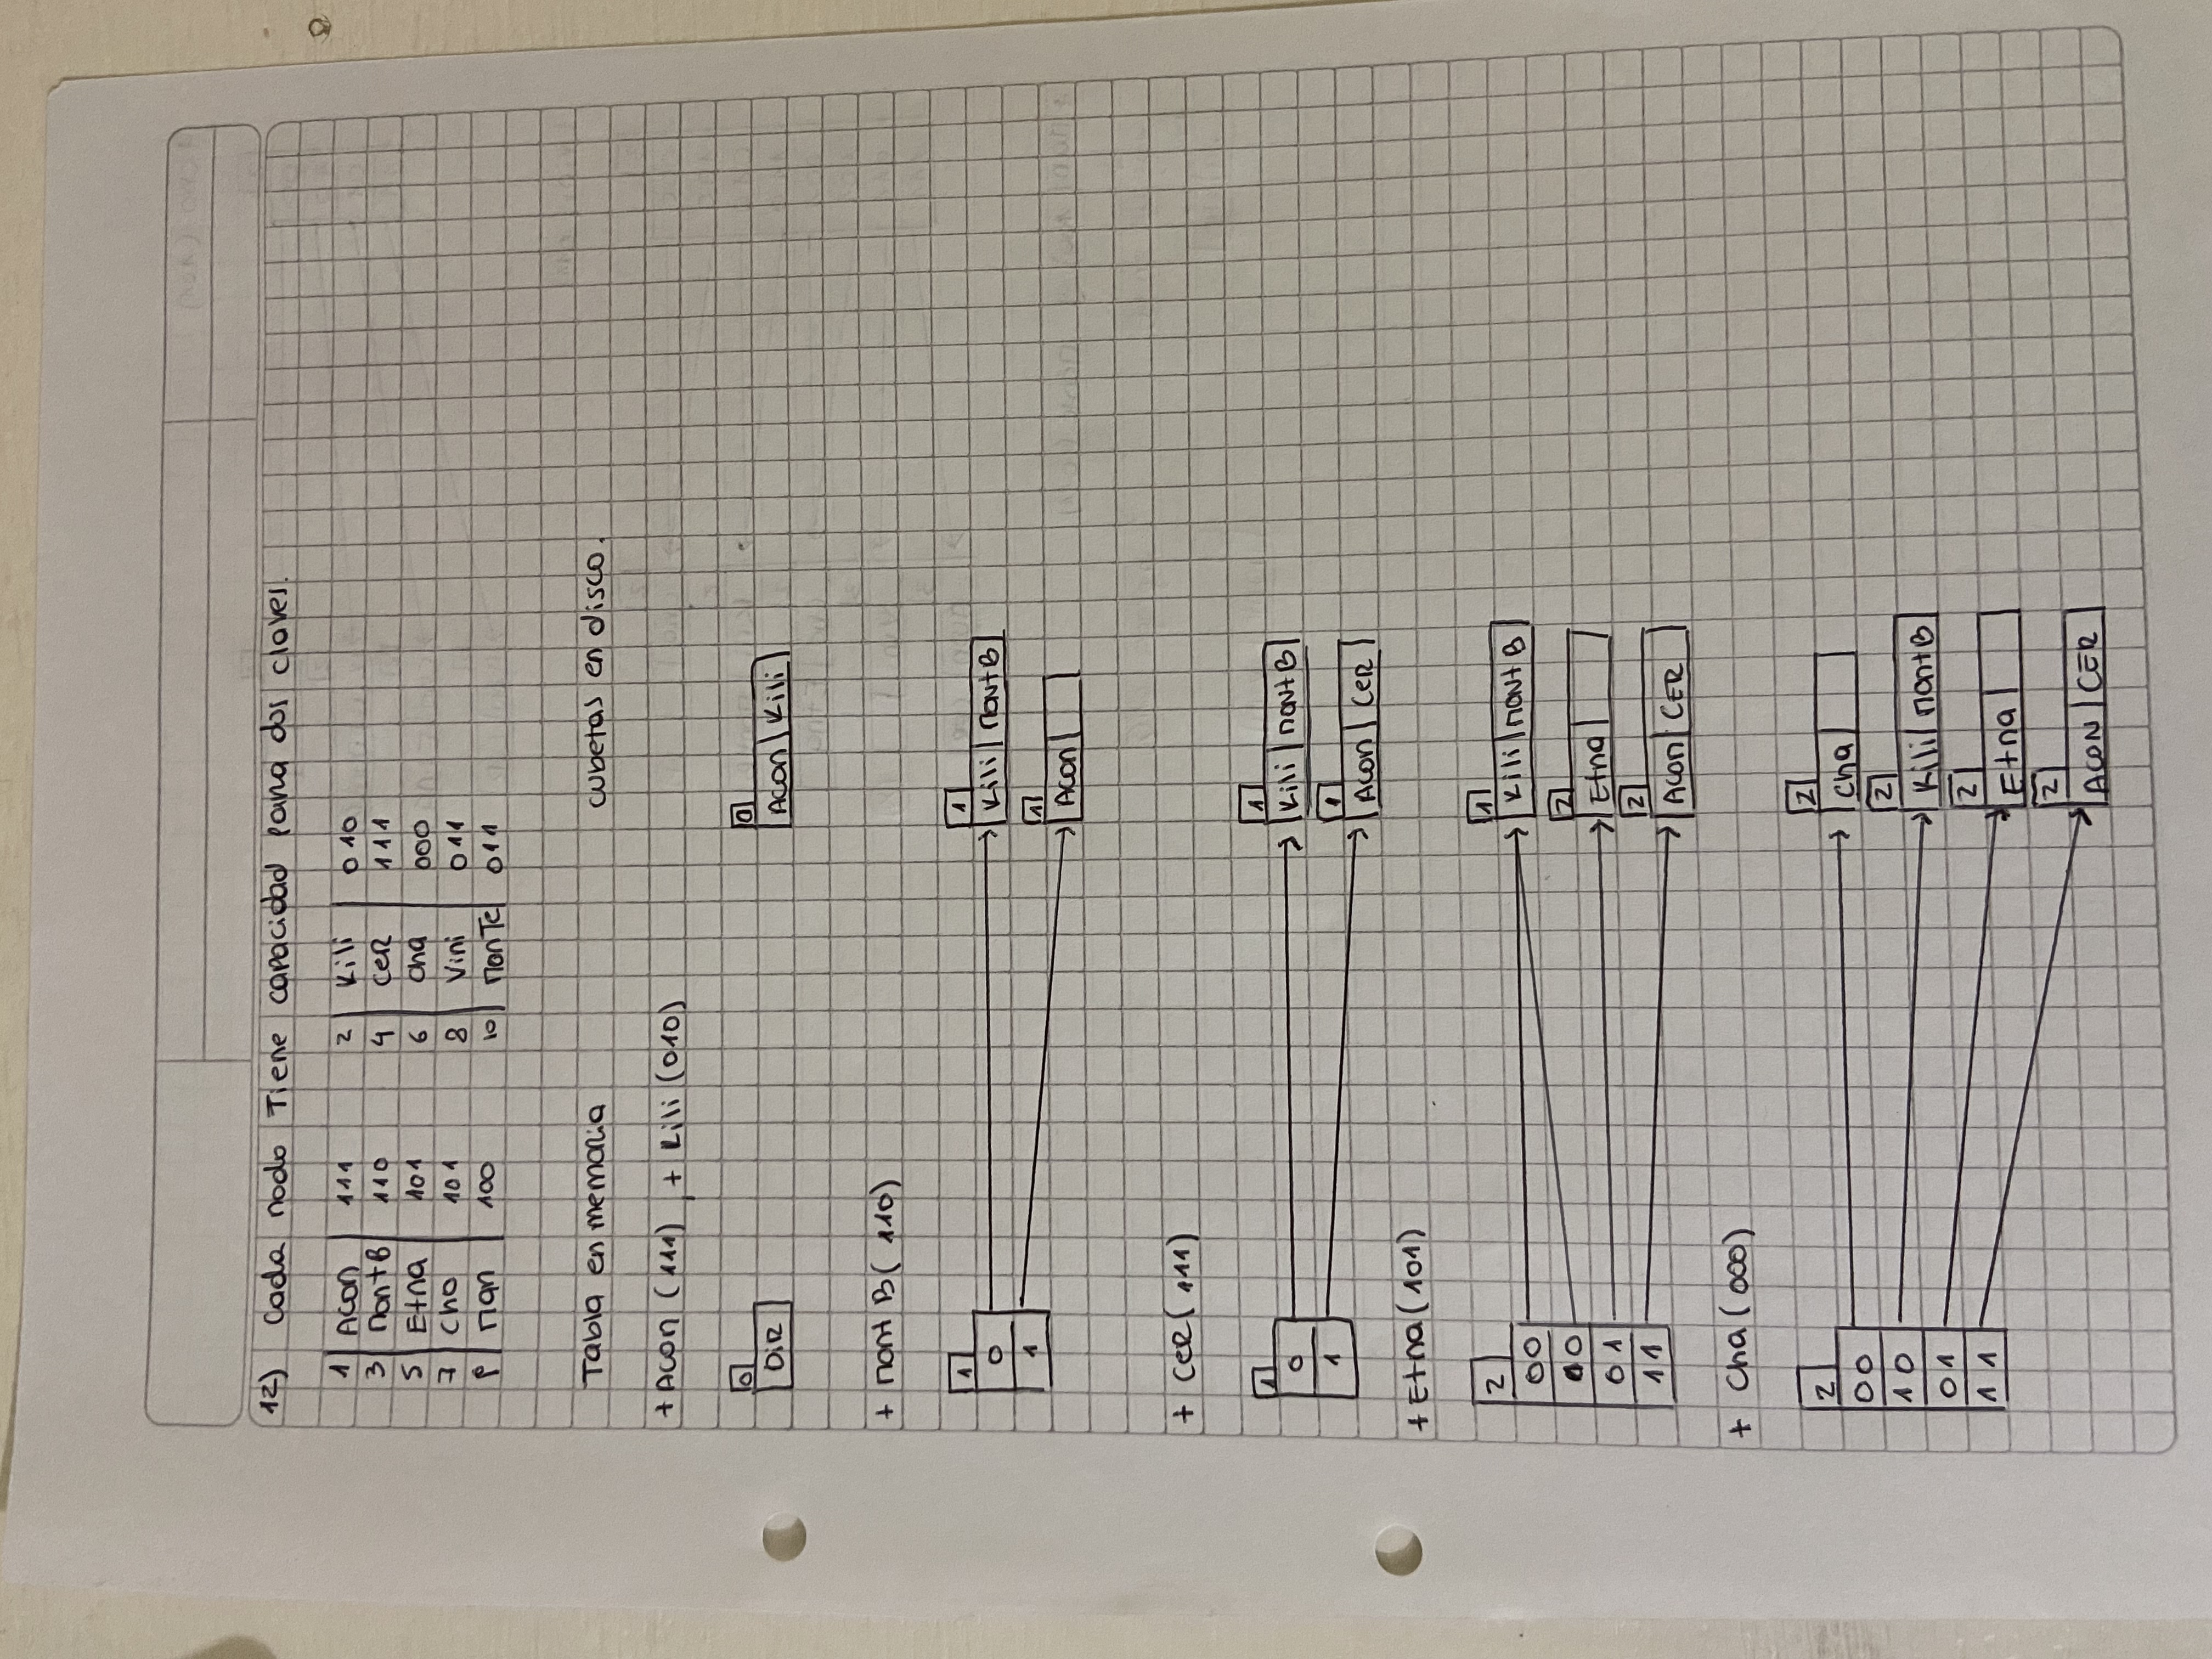 12) Cada nodo Tiene capacidad para dos claves.
1 Acon 111 2 Kili 010
3 MontB 110 4 CER 111
5 Etna 101 6 Cha 000
7 Cho 101 8 Vini 011
9 Man 100 10 MonTe 011
Tabla en memoria cubetas en disco.
+ Acon (111), + Kili (010)
0 0
DIR Acon Kili
+ Mont B (110)
1 1
0 Kili MontB
1 1
Acon
+ CER (111)
1 1
0 Kili MontB
1 1
Acon CER
+ Etna (101)
2 1
00 Kili MontB
10 2
01 Etna
11 2
Acon CER
+ Cha (000)
2 2
00 Cha
10 2
01 Kili MontB
11 2
Etna
2
ACON CER